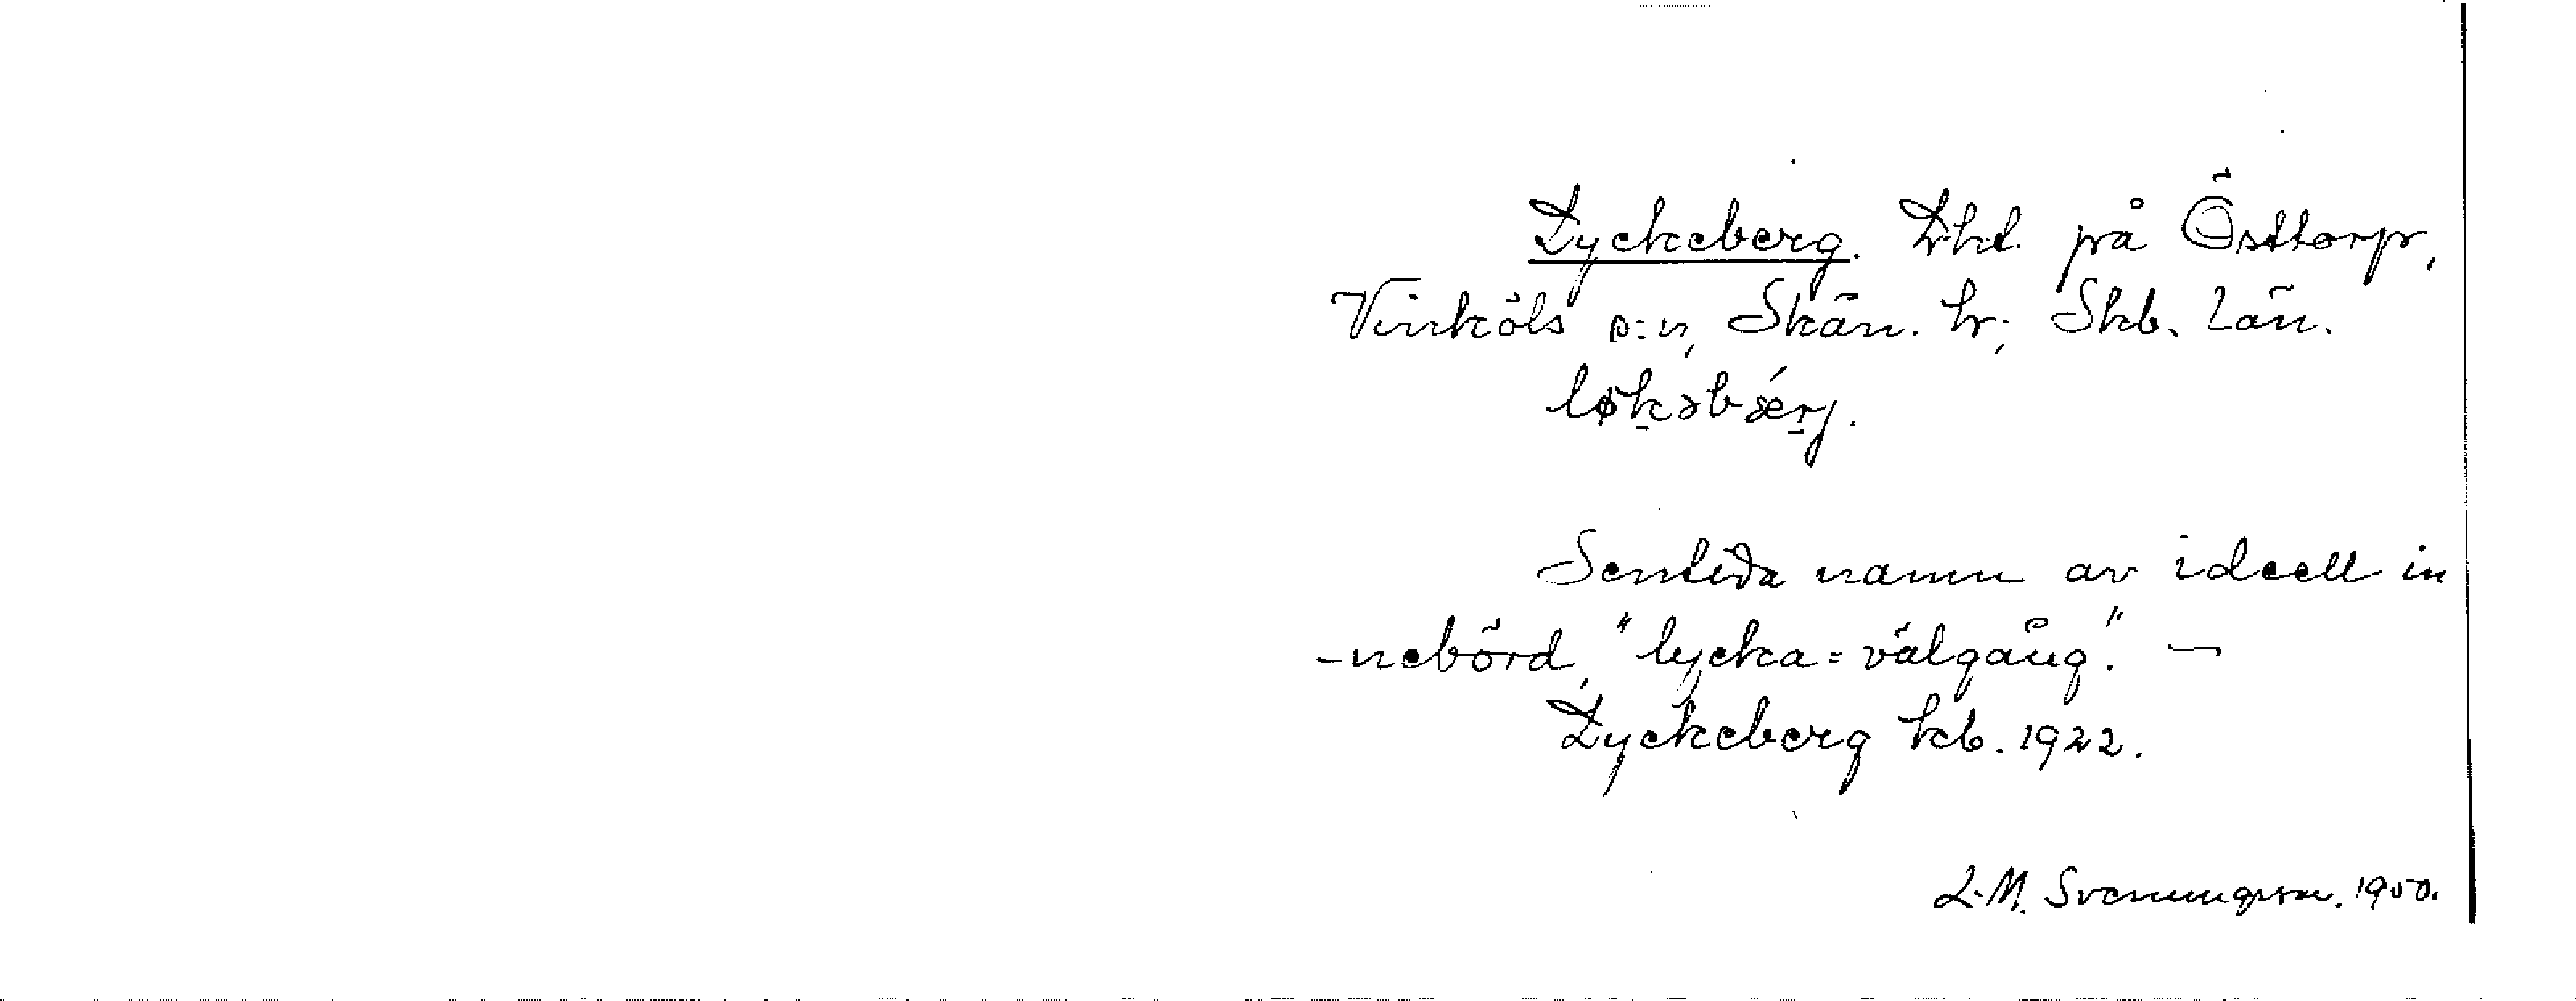 Lyckeberg. Lhl. på Östtorp,
Vinköls s:n, Skån. hr; Skb. län.
løkəbærj.
Sentida namn av ideell in
-nebörd, "lycka = välgång". —
Lyckeberg kb. 1922.
L.M. Svenungsson. 1950.